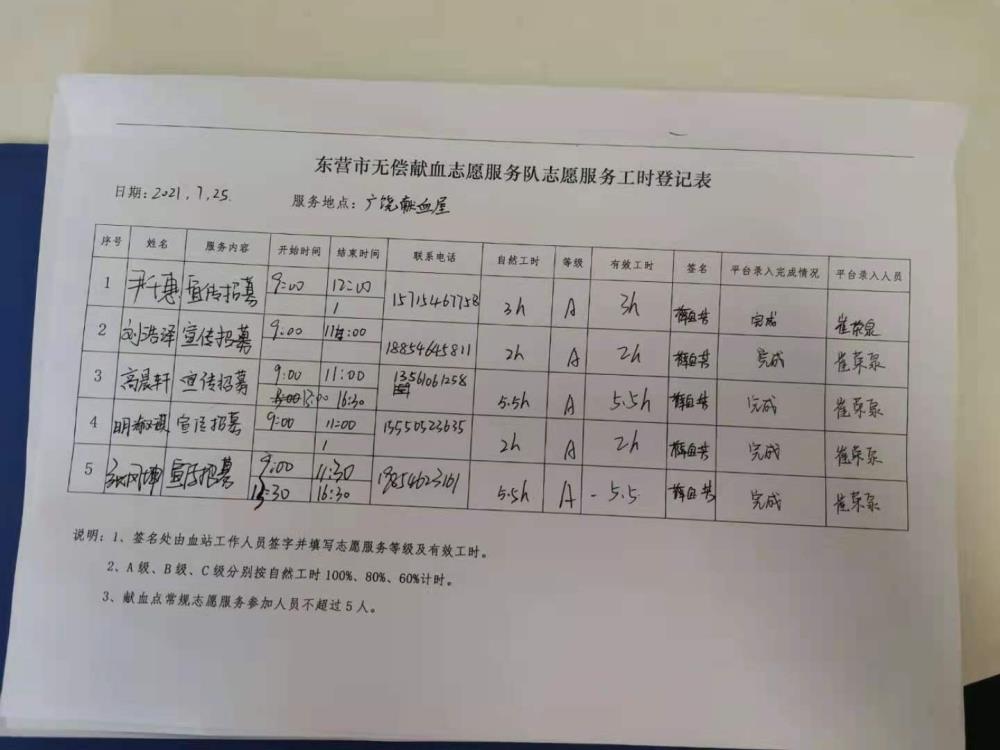 东营市无偿献血志愿服务队志愿服务工时登记表
日期：2021.7.25. 服务地点：广饶献血屋
序号 姓名 服务内容 开始时间 结束时间 联系电话 自然工时 等级 有效工时 签名 平台录入完成情况 平台录入人员
1 尹千惠 宣传招募 9:00 12:00 15715467758 3h A 3h 完成 崔荣泉
2 刘浩泽 宣传招募 9:00 11:00 18854645811 2h A 2h 完成 崔荣泉
3 高晨轩 宣传招募 9:00 11:00 13561061258 5.5h A 5.5h 完成 崔荣泉
16:30
4 宣传招募 9:00 11:00 15550523635 2h A 2h 完成 崔荣泉
5 宣传招募 9:00 11:30 19854623161 5.5h A - 5.5 完成 崔荣泉
13:30 16:30
说明：1、签名处由血站工作人员签字并填写志愿服务等级及有效工时。
2、A级、B级、C级分别按自然工时100%、80%、60%计时。
3、献血点常规志愿服务参加人员不超过5人。